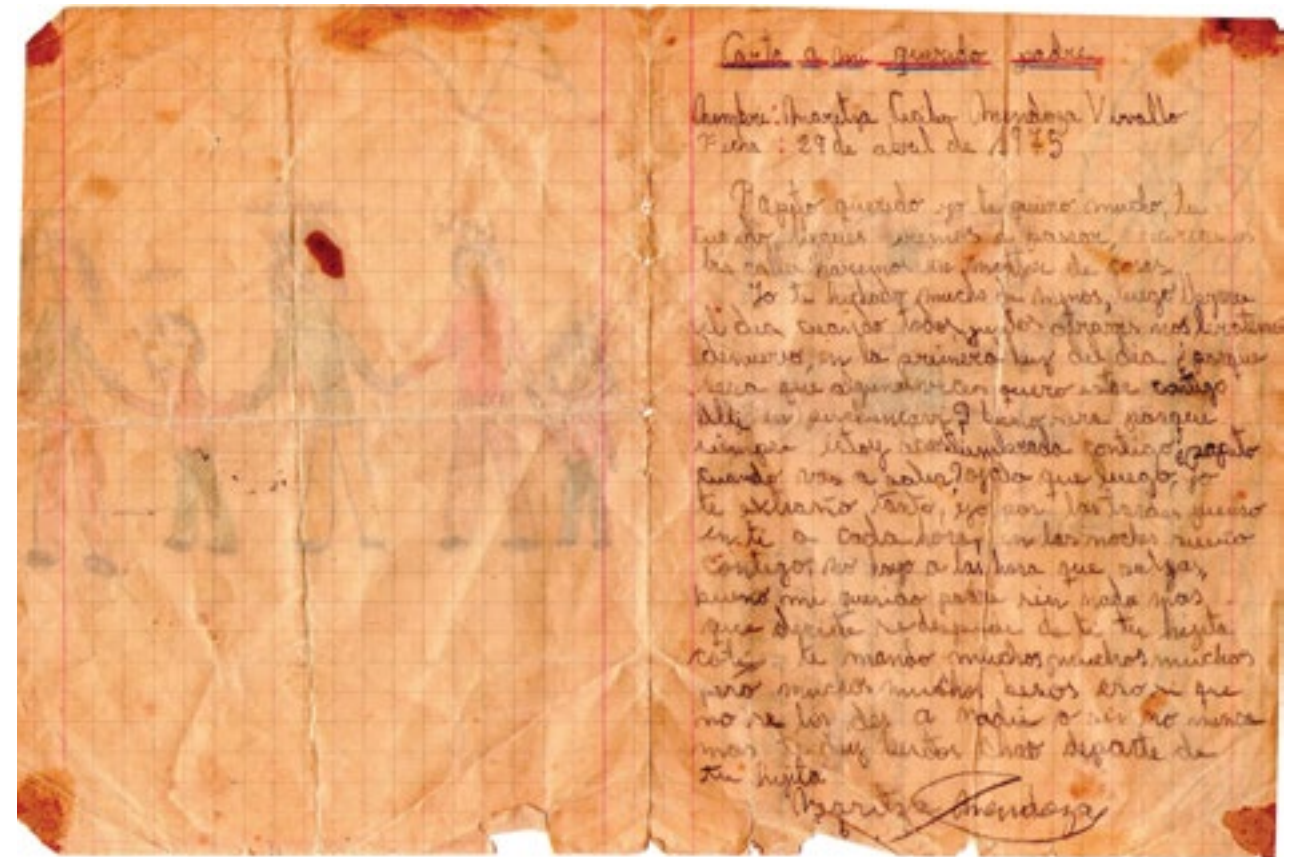 Carta a mi querido padre
Nombre: Maritza Mendoza
Fecha : 29 de abril de 1975
Papito querido yo te quiero mucho,
iremos a pasear,
haremos un montón de cosas
Yo te hechado mucho de menos, luego
el dia cuando todos juntos otravez nos
denuevo, en la primera luz del dia ¿porque
sera que algunas veces quero estar contigo
alli en bueno sera porque
siempre estoy acostumbrada contigo, papito
cuando vas a salir? ojala que luego, yo
te extraño tanto, yo por las tardes pienso
en ti a cada hora, en las noches sueño
contigo, no hayo a las hora que salgas,
bueno mi querido padre sin nada mas
que decirte se despide de ti tu hijita
te mando muchos muchos muchos
pero muchos muchos besos eso si que
no se los des a nadie o sino nunca
mas te doy besitos chao departe de
tu hijita
Maritza Mendoza